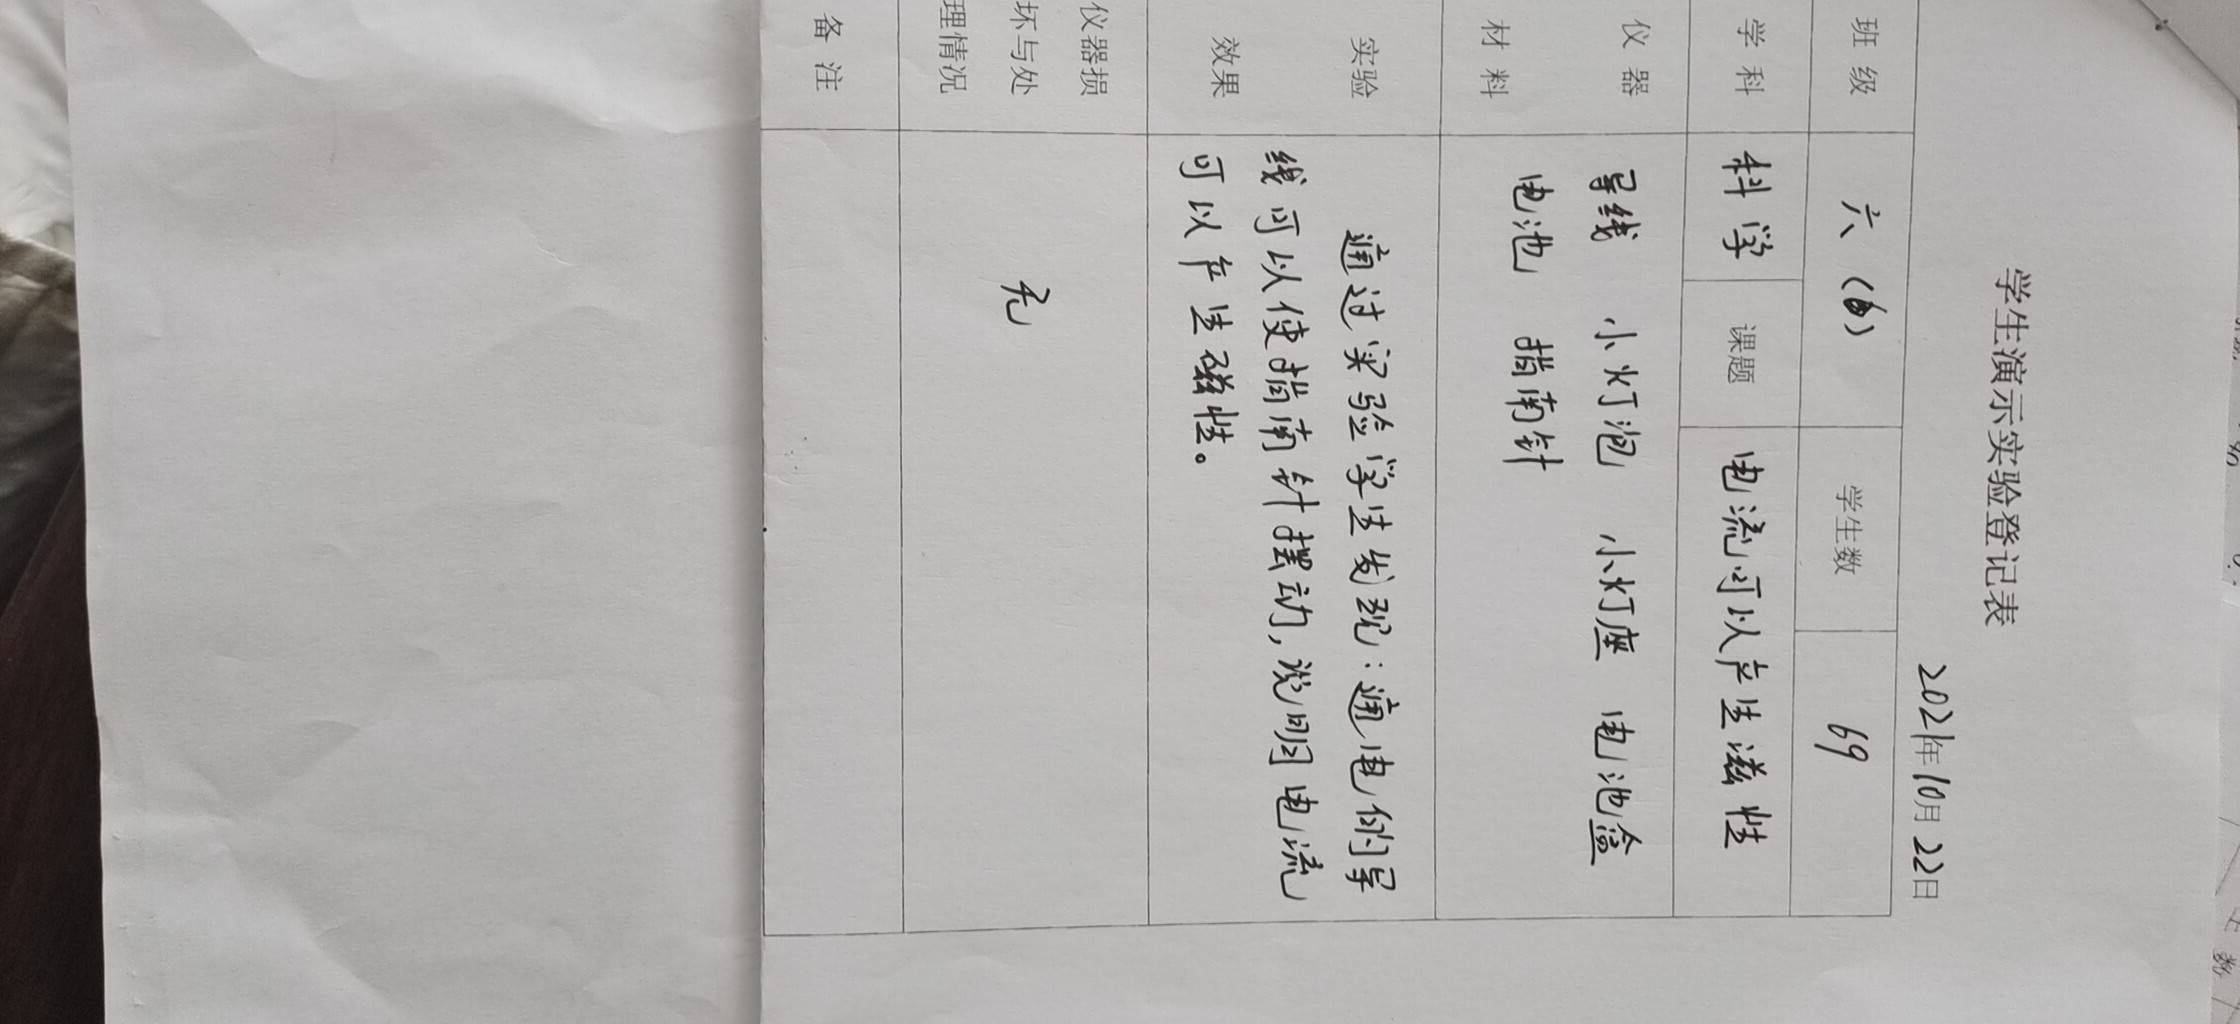 学生演示实验登记表
2021年10月22日
班级 六(6) 学生数 69
学科 科学 课题 电流可以产生滋性
仪器 导线 小灯泡 小灯座 电池盒
材料 电池 指南针
实验 通过实验学生发现：通电的导
效果 线可以使指南针摆动，说明电流
可以产生磁性。
仪器损
坏与处 无
理情况
备注